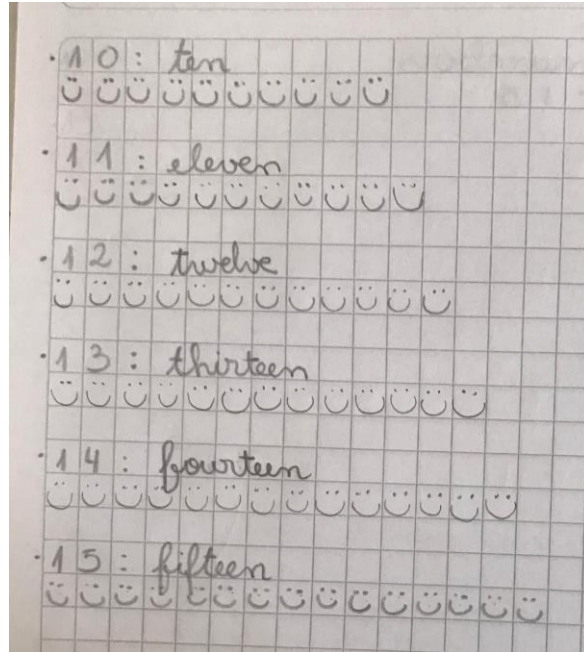 · 10: ten
· 11: eleven
· 12: twelve
· 13: thirteen
· 14: fourteen
· 15: fifteen